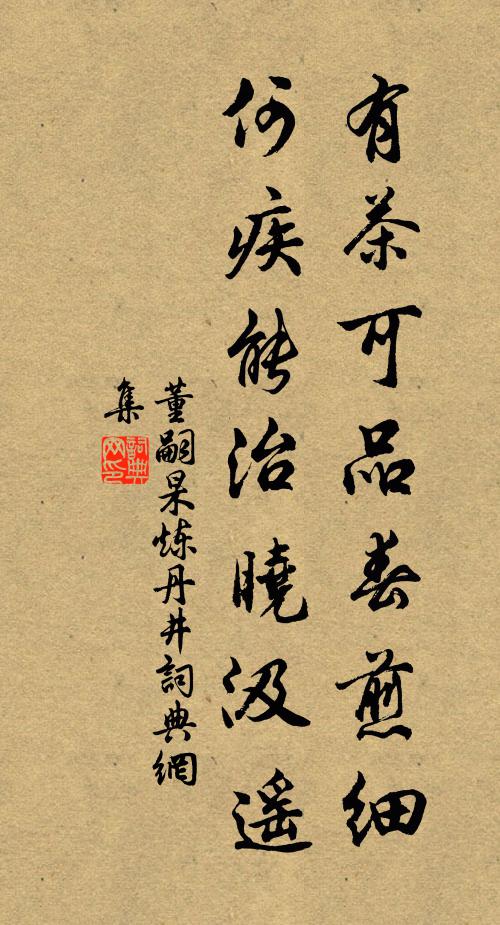 有茶可品春煎细
何疾能治曉汲遥
董嗣杲炼丹井詞典網
集
詞典網印